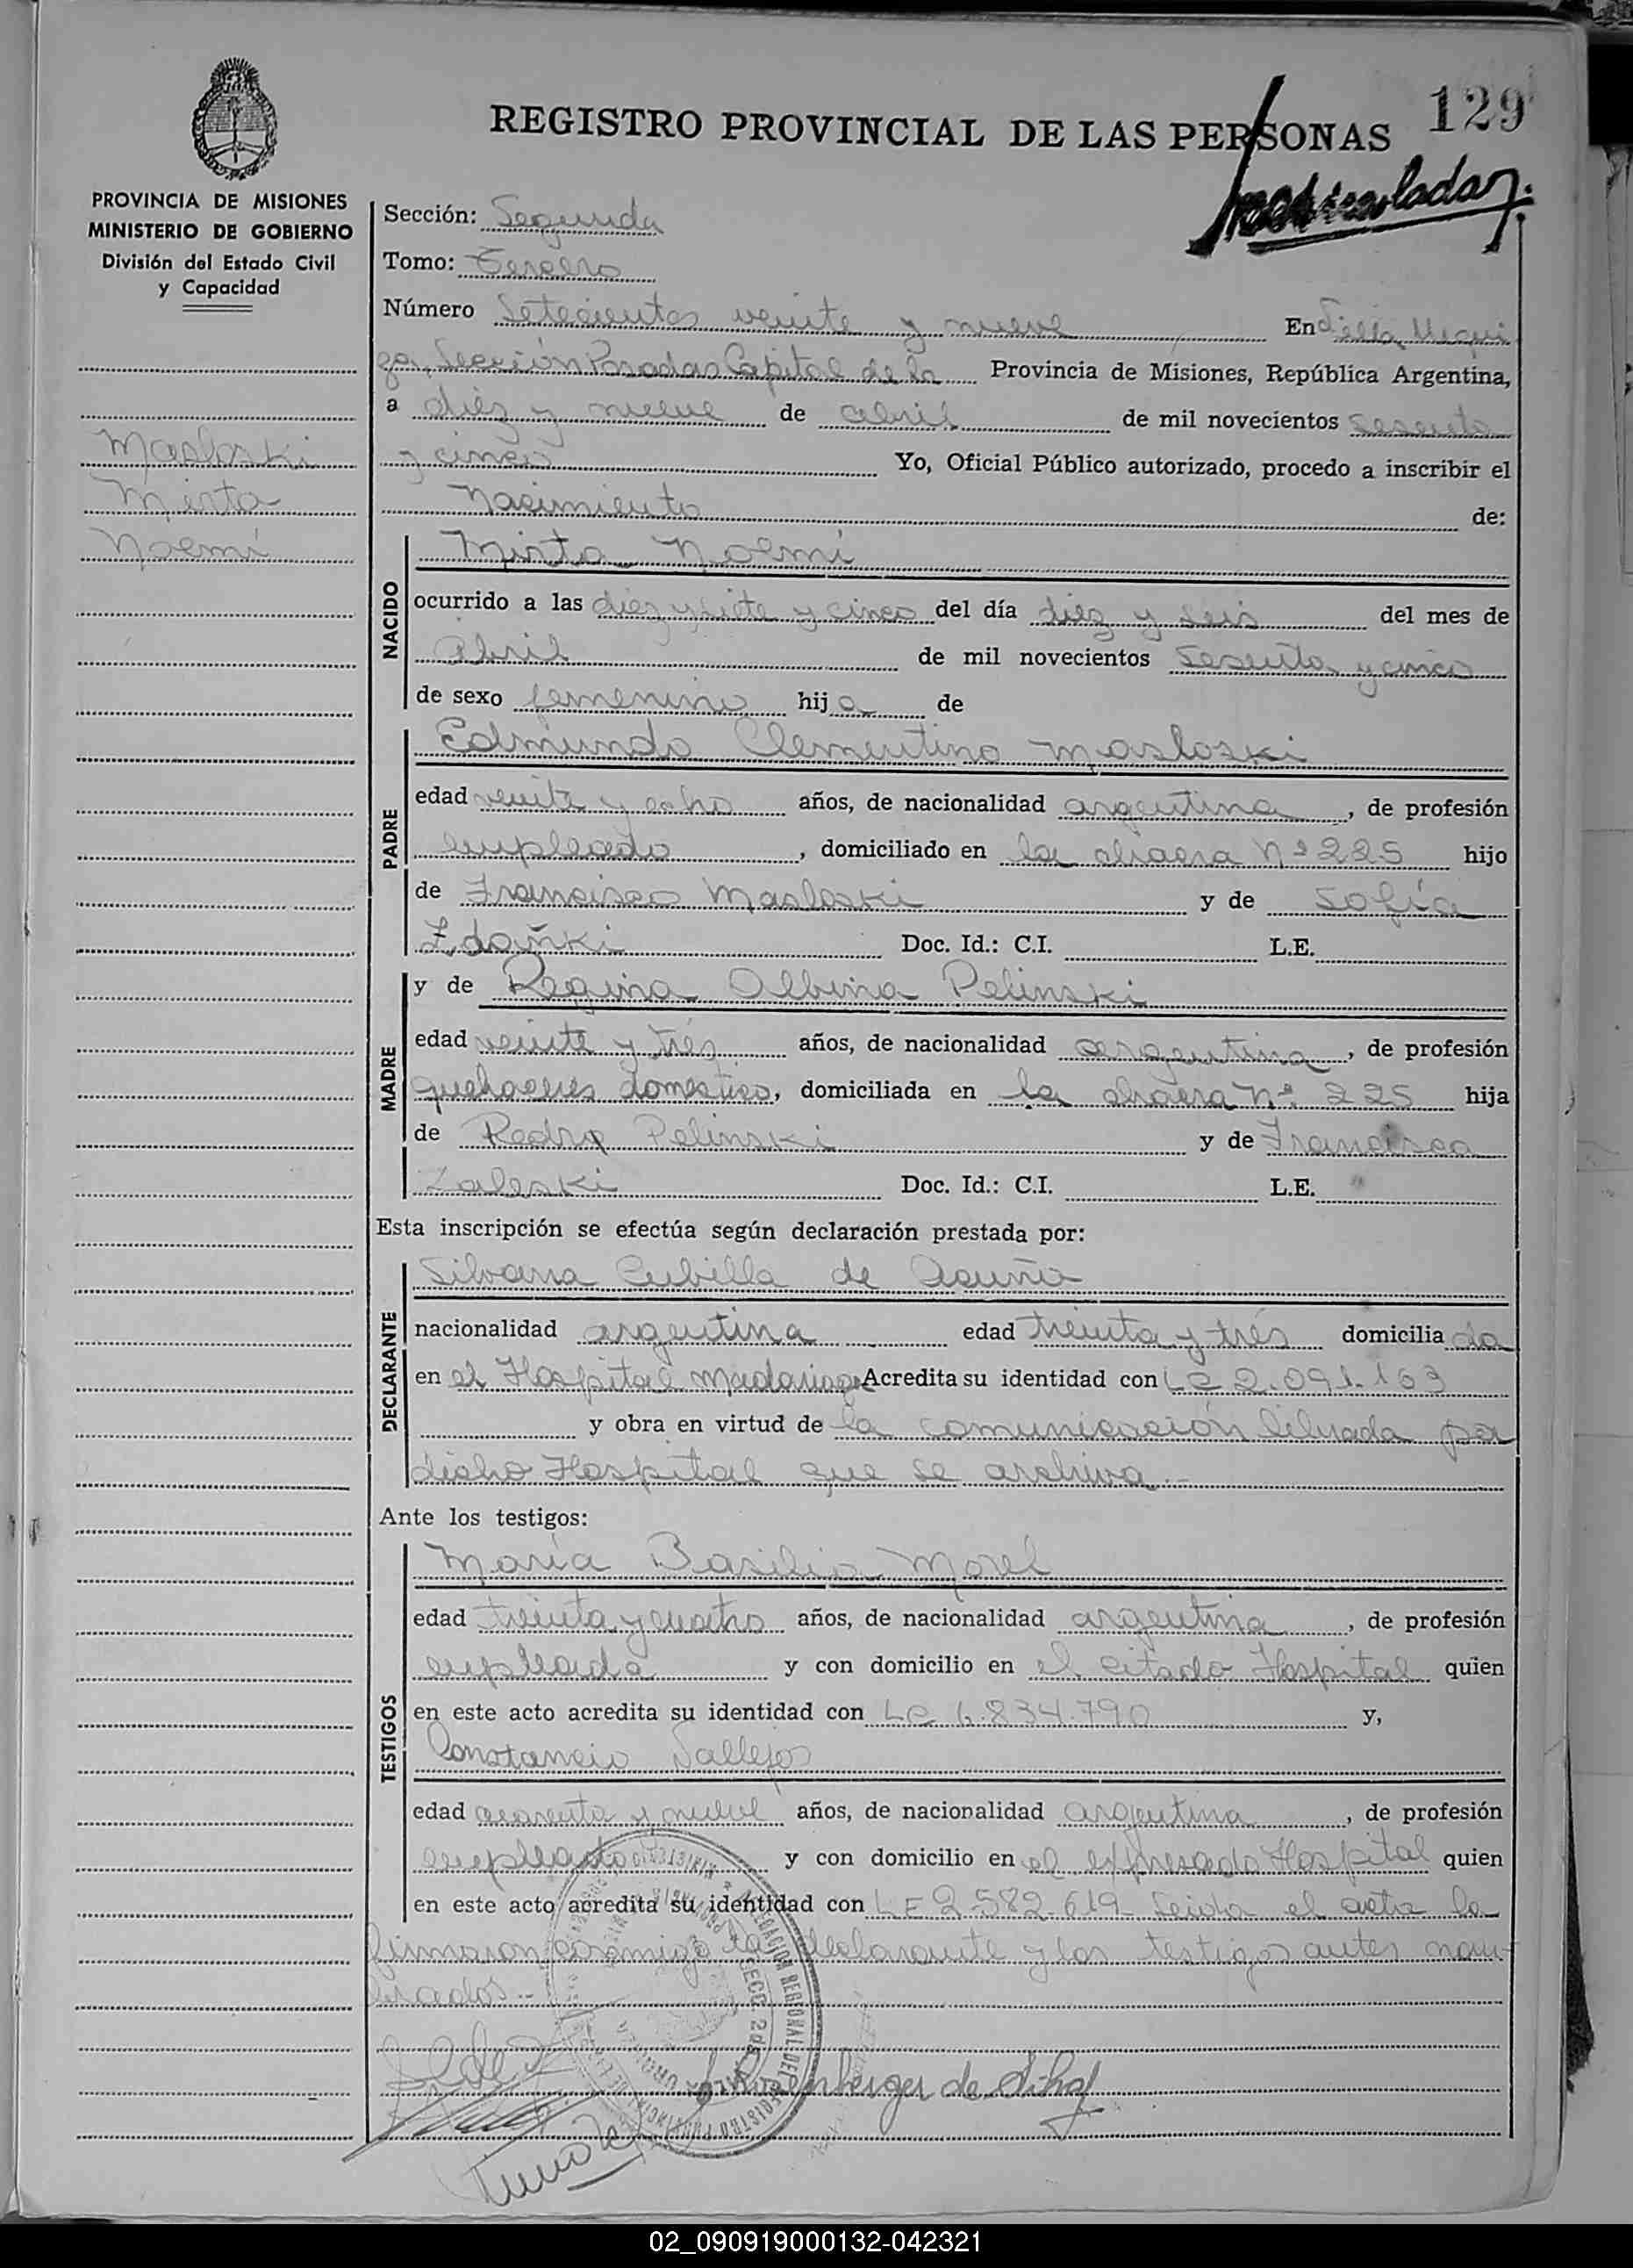 129
REGISTRO PROVINCIAL DE LAS PERSONAS
PROVINCIA DE MISIONES
MINISTERIO DE GOBIERNO
División del Estado Civil
y Capacidad
Masloski
Mirta
Noemí
Sección: Segunda
Tomo: Tercero
Número Setecientos veinte y nueve En Villa Urqui
za, Sección Posadas Capital de la Provincia de Misiones, República Argentina,
a diez y nueve de abril de mil novecientos sesenta
y cinco Yo, Oficial Público autorizado, procedo a inscribir el
Nacimiento de:
NACIDO
Mirta Noemí
ocurrido a las diez y siete y cinco del día diez y seis del mes de
abril de mil novecientos sesenta y cinco
de sexo femenino hija de
PADRE
Edmundo Clementino Masloski
edad veinte y ocho años, de nacionalidad argentina, de profesión
empleado, domiciliado en la chacra Nº 225 hijo
de Francisco Masloski y de Sofía
Zdañki Doc. Id.: C.I. L.E.
MADRE
y de Regina Albina Pelinski
edad veinte y tres años, de nacionalidad argentina, de profesión
quehaceres domestico, domiciliada en la chacra Nº 225 hija
de Pedro Pelinski y de Francisca
Zaleski Doc. Id.: C.I. L.E.
Esta inscripción se efectúa según declaración prestada por:
DECLARANTE
Silvana Cubilla de Acuña
nacionalidad argentina edad treinta y tres domiciliada
en el Hospital Madariaga Acredita su identidad con LC 2.091.163
y obra en virtud de la comunicación librada por
dicho Hospital que se archiva.-
Ante los testigos:
TESTIGOS
María Basilia Morel
edad treinta y cuatro años, de nacionalidad argentina, de profesión
empleada y con domicilio en el citado Hospital quien
en este acto acredita su identidad con LC 6.834.790 y,
Constancio Vallejos
edad cuarenta y nueve años, de nacionalidad argentina, de profesión
empleado y con domicilio en el expresado Hospital quien
en este acto acredita su identidad con LE 2.582.619 Leida el acta la
firmaron conmigo la declarante y los testigos antes nom
brados.-
02_090919000132-042321